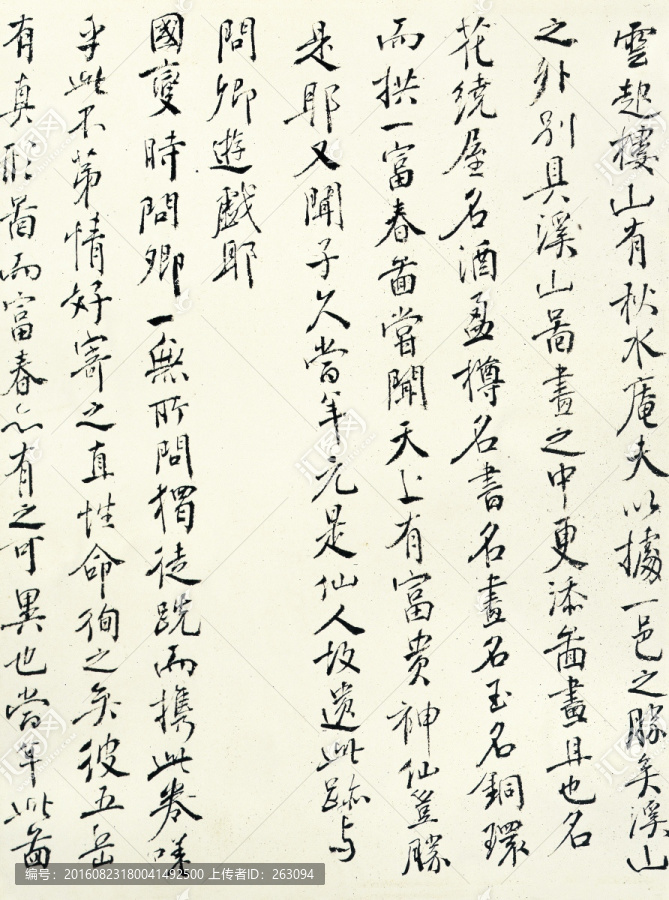 雲起樓山有秋水庵夫以據一邑之勝矣溪山
之外別具溪山啚畫之中更添啚畫且也名
花繞屋名酒盈樽名書名畫名玉名銅環
而拱一富春啚嘗聞天上有富貴神仙豈勝
是耶又聞子久當年元是仙人故遺此跡与
問卿遊戲耶
國變時問卿一無所問獨徒跣而携此卷嗟
乎此不第情好寄之直性命徇之矣彼五岳
有真形啚而富春亦有之可異也當年此啚
编号：20160823180041492500 上传者ID：263094